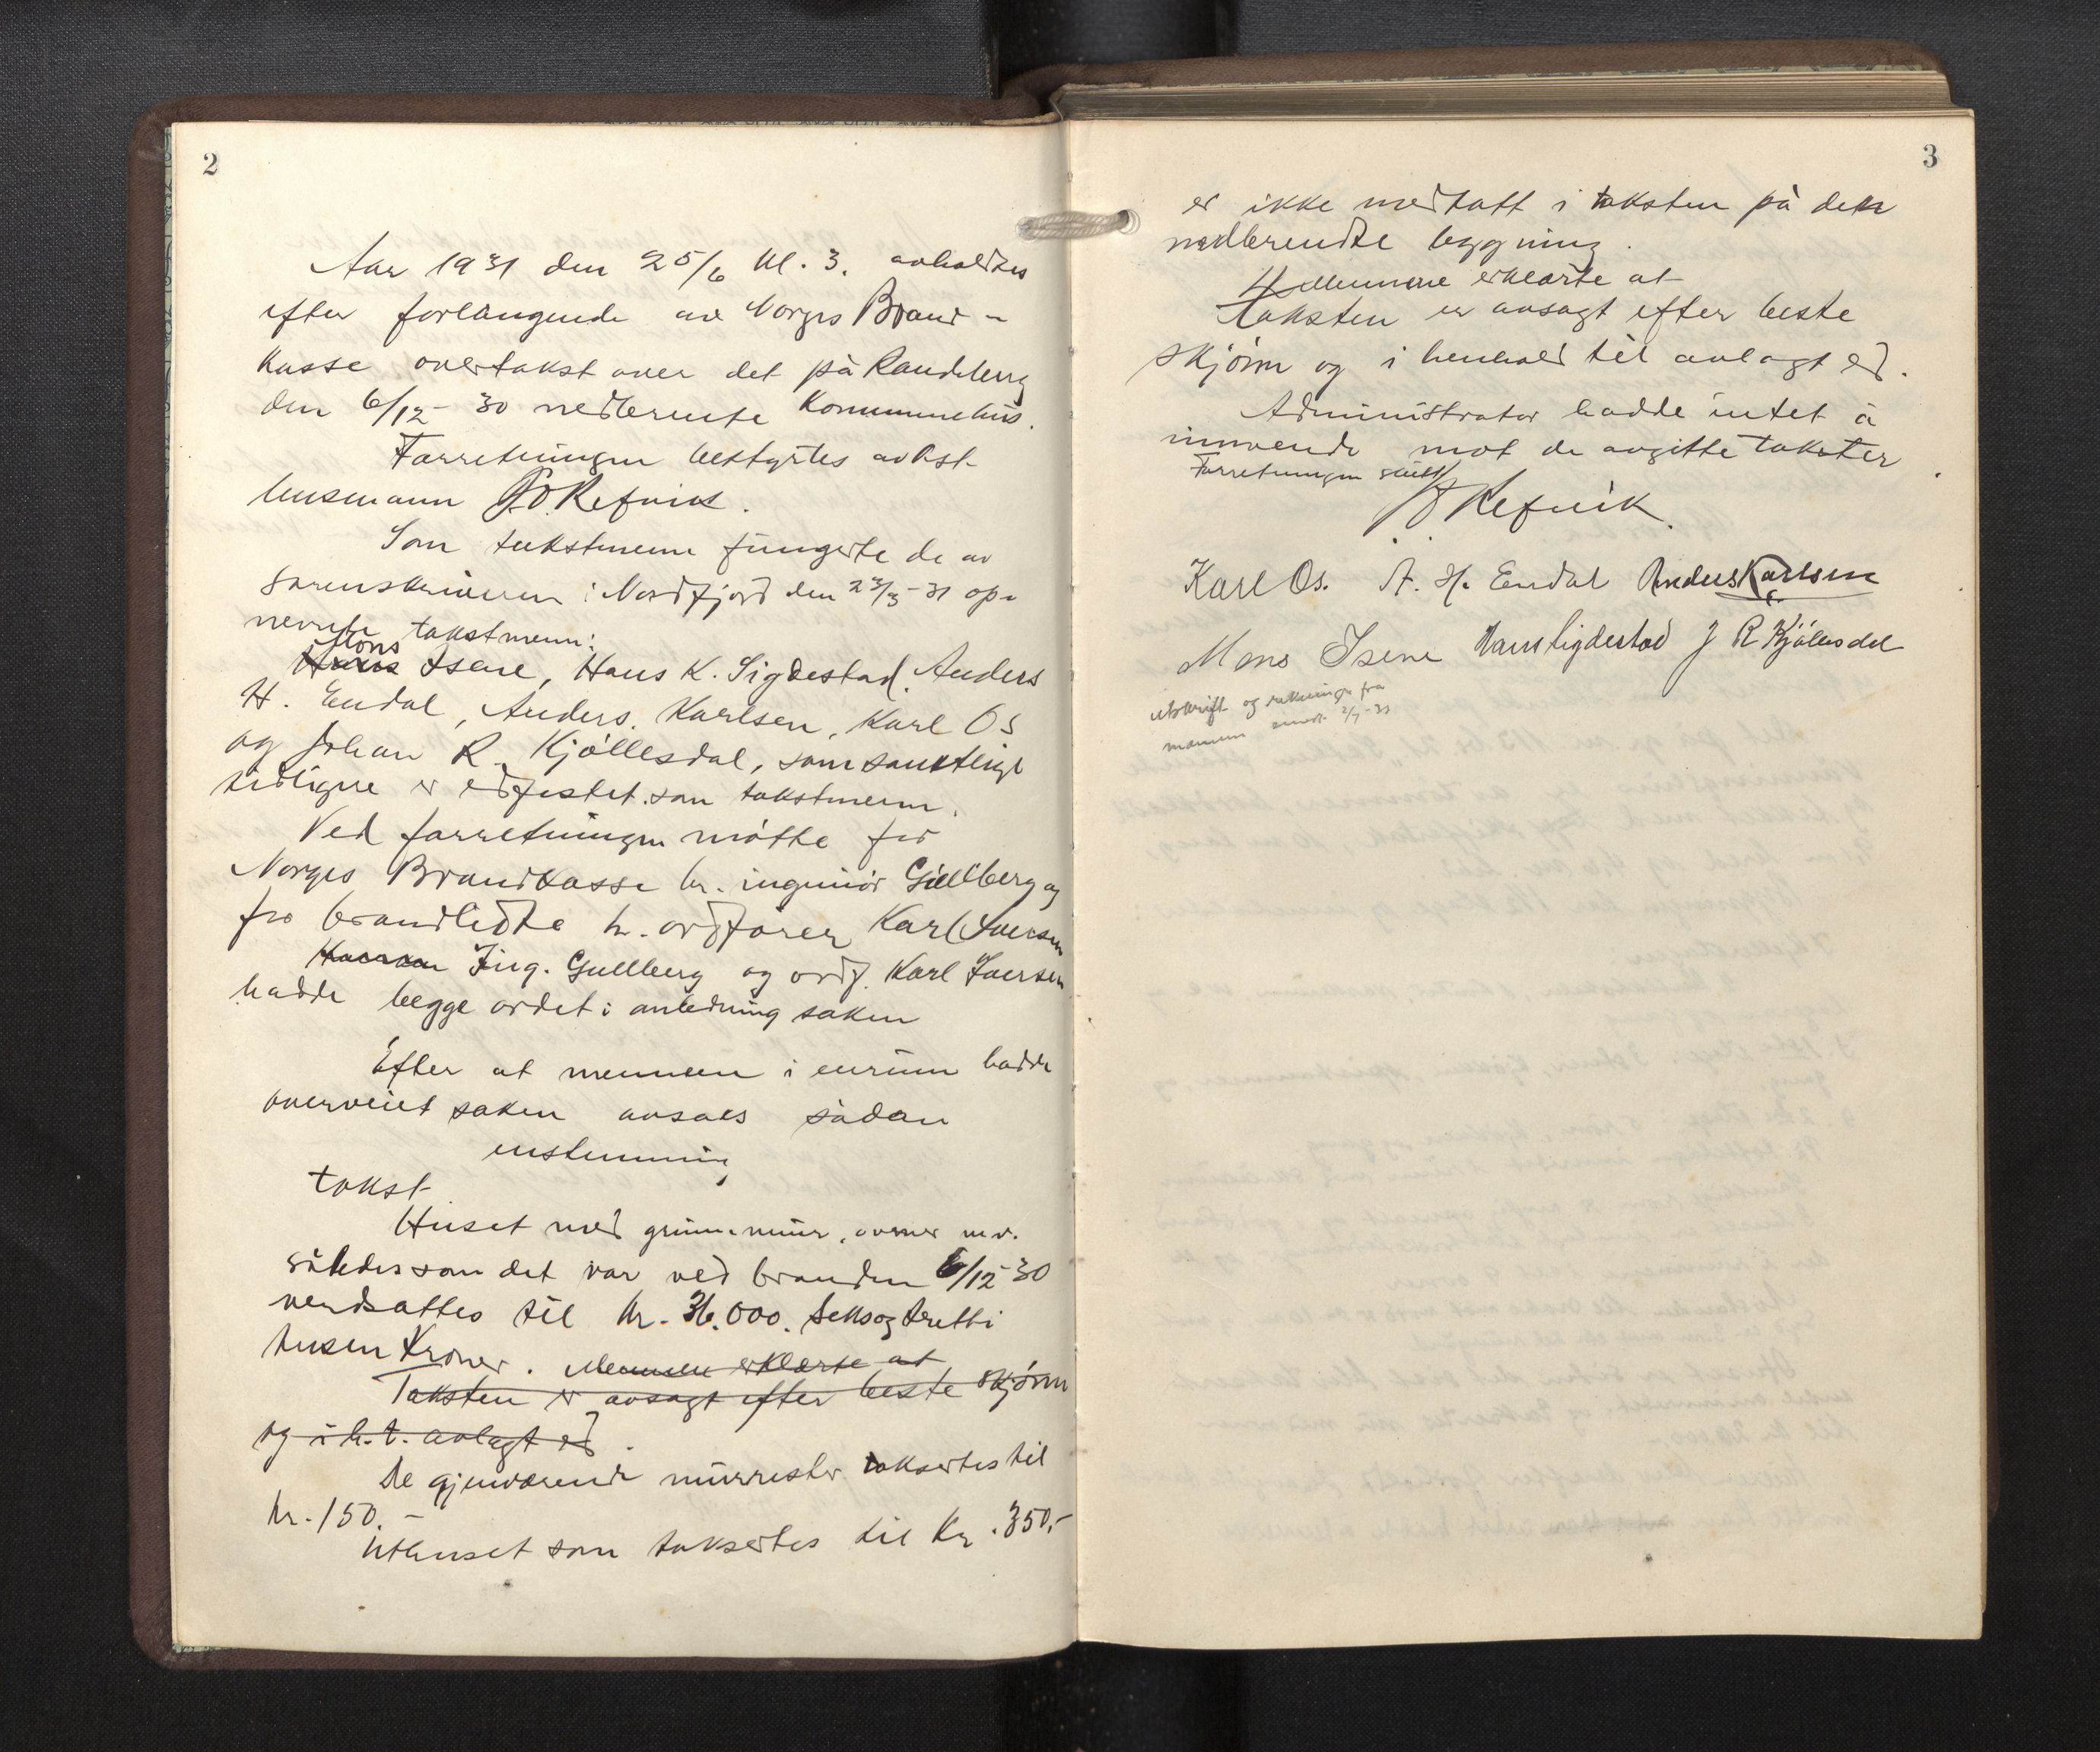 2
Aar 1931 den 25/6 kl. 3. avholdtes
efter forlangende av Norges Brand-
kasse overtakst over det på Randeberg
den 6/12-30 nedbrente Kommunehus.
Forretningen bestyrtes av lst.
lensmann P.O. Refvik.
Som takstmenn fungerte de av
sorenskriveren i Nordfjord den 23/3-31 op-
nevnte takstmenn:
Mons
Isene, Hans K. Sigdestad, Anders
H. Endal, Anders Karlsen, Karl Os
og Johan R. Kjøllesdal, som samtlige
tidligere er edfestet som takstmenn.
Ved forretningen møtte for
Norges Brandkasse hr. ingeniør Gullberg og
for brandlidte hr. ordfører Karl Iversen
Ing. Gullberg og ordf. Karl Iversen
hadde begge ordet i anledning saken
Efter at mennene i enrum hadde
overveiet saken avsaes sådan
enstemmig
takst
Huset med grunnmur, ovner m.v.
således som det var ved branden 6/12-30
verdsattes til kr. 36.000. seksogtretti
tusen Kroner. Mennene erklærte at
Taksten er avsagt efter beste skjønn
og i h.t. avlagt ed.
De gjenværende murrester taksertes til
kr. 150.-
Uthuset som taksertes til kr. 350,-
3
er ikke medtatt i taksten på den
nedbrendte bygning.
Mennene erklærte at
Taksten er avsagt efter beste
skjønn og i henhold til avlagt ed.
Administrator hadde intet å
innvende mot de avgitte takster.
Forretningen slutt
P O Refvik.
Karl Os. A. H. Endal Anders Karlsen
Mons Isene Hans Sigdestad J R Kjøllesdal
utskrift og rekninge fra
mennene sendt 2/7-31